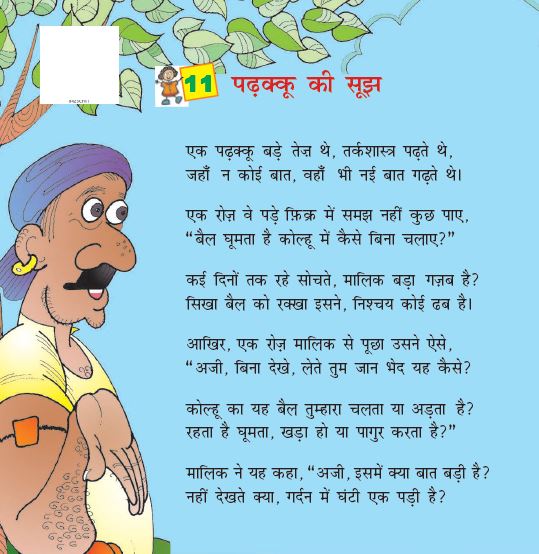 11 पढ़क्कू की सूझ
एक पढ़क्कू बड़े तेज़ थे, तर्कशास्त्र पढ़ते थे,
जहाँ न कोई बात, वहाँ भी नई बात गढ़ते थे।
एक रोज़ वे पड़े फ़िक्र में समझ नहीं कुछ पाए,
“बैल घूमता है कोल्हू में कैसे बिना चलाए?”
कई दिनों तक रहे सोचते, मालिक बड़ा गज़ब है?
सिखा बैल को रक्खा इसने, निश्चय कोई ढब है।
आखिर, एक रोज़ मालिक से पूछा उसने ऐसे,
“अजी, बिना देखे, लेते तुम जान भेद यह कैसे?
कोल्हू का यह बैल तुम्हारा चलता या अड़ता है?
रहता है घूमता, खड़ा हो या पागुर करता है?”
मालिक ने यह कहा, “अजी, इसमें क्या बात बड़ी है?
नहीं देखते क्या, गर्दन में घंटी एक पड़ी है?